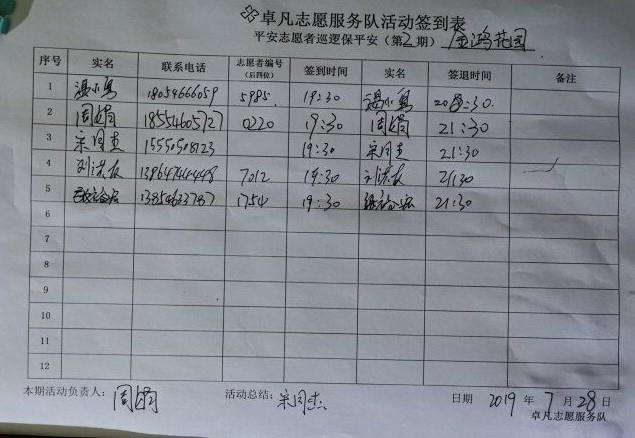 卓凡志愿服务队活动签到表
平安志愿者巡逻保平安（第2期） 金鸿花园
序号 实名 联系电话 志愿者编号（后四位） 签到时间 实名 签退时间 备注
1 小 18054666059 5985 19:30 小 :30
2 周娟 18554605727 0220 19:30 周娟 21:30
3 宋同杰 15550508123 19:30 宋同杰 21:30
4 刘洪友 7012 19:30 刘洪友 21:30
5 13854633787 1754 19:30 21:30
6
7
8
9
10
11
12
本期活动负责人： 周娟 活动总结： 宋同杰 日期 2019 年 7 月 28 日
卓凡志愿服务队